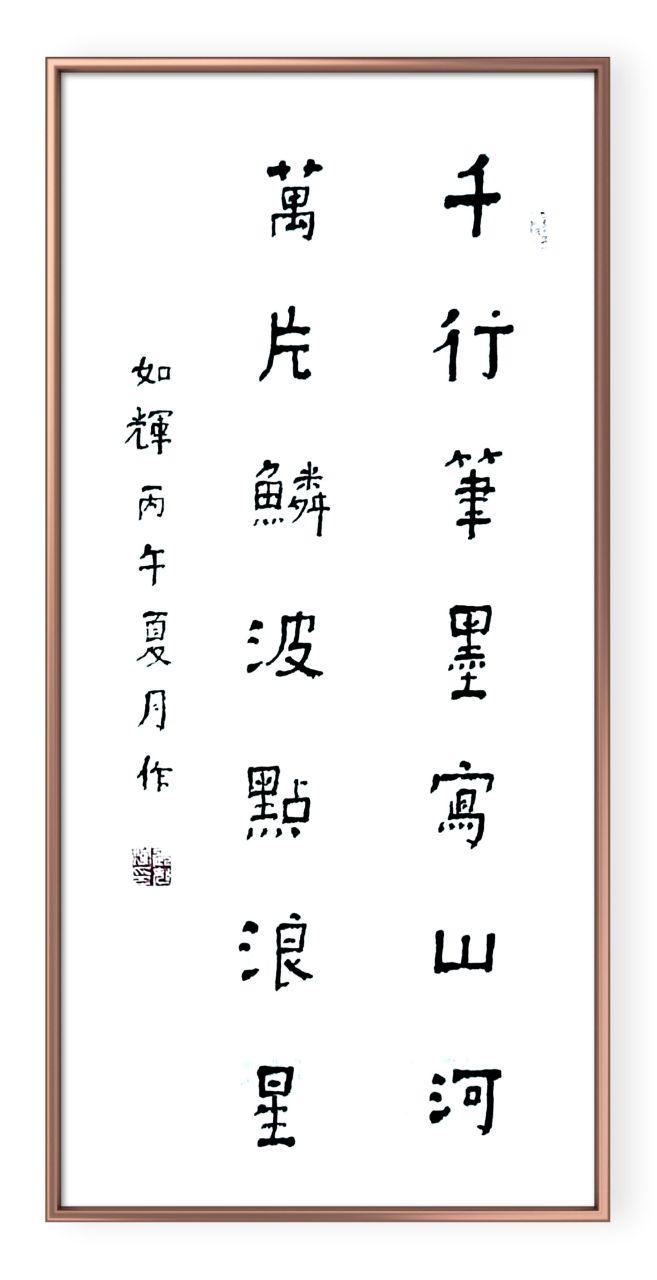 千行筆墨寫山河
萬片鱗波點浪星
如輝丙午夏月作